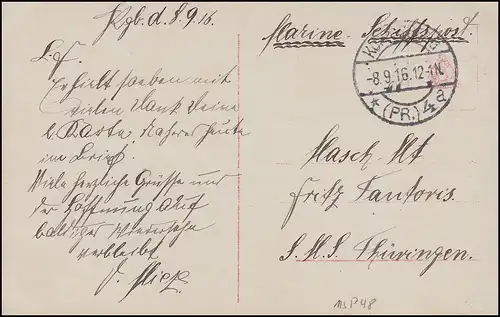 Kgb. d. 8.9.16.
Erhielt soeben mit
vielen Dank Deine
l. Karte, Näheres heute
im Brief.
Viele herzliche Grüsse und
der Hoffnung auf
baldiges Wiedersehn
verbleibt
Marine-Schiffspost.
-8.9.16.12-1N.
* (PR.) 4a
Masch. Mt
Fritz Tantoris
S.M.S. Thüringen.
MSP 48